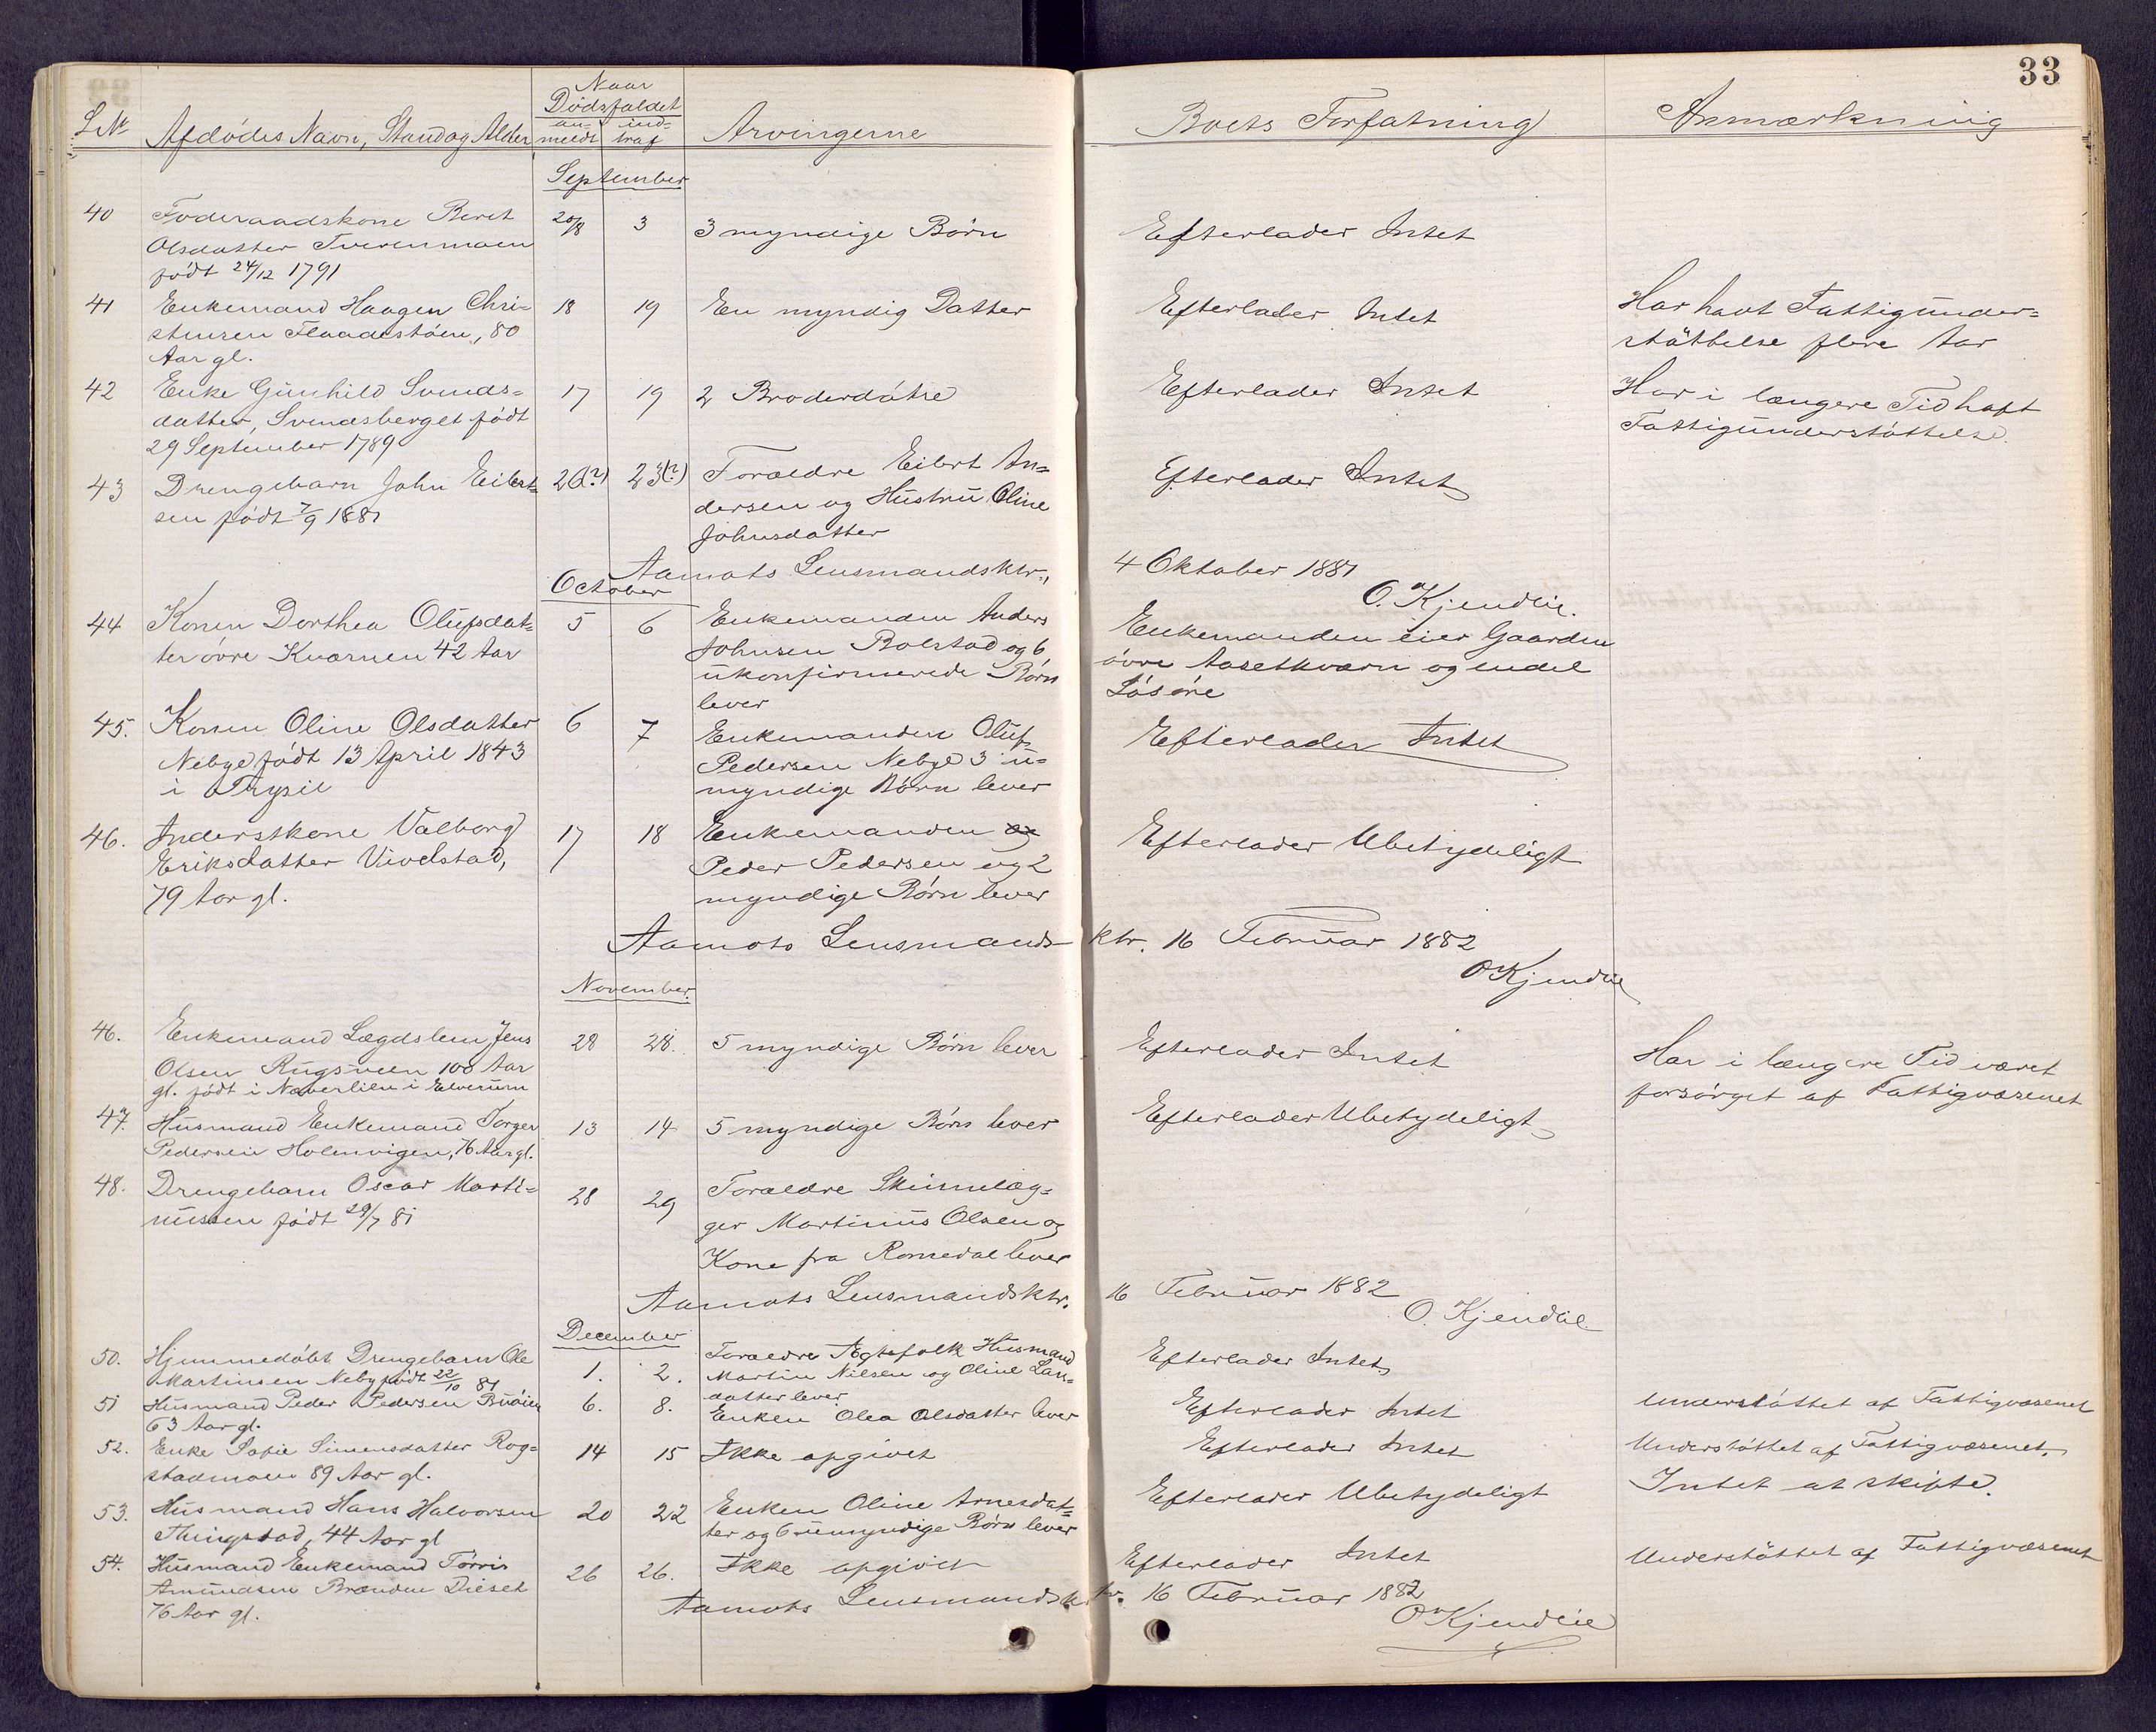 33
Naar
Dødsfaldet
L№ Afdødes Navn, Stand og Alder an- ind- Arvingerne Boets Forfatning Anmærkning
meldt traf
September
40 Føderaadskone Beret 20/8 3 3 myndige Børn Efterlader Intet
Olsdatter Tverenmoen
født 24/12 1791
41 Enkemand Haagen Chri- 18 19 En myndig Datter Efterlader Intet Har havt Fattigunder-
stensen Flaadestøen, 80 støttelse flere Aar
Aar gl.
42 Enke Gunhild Svends- 17 19 2 Broderdøtre Efterlader Intet Har i længere Tid haft
datter, Svendsberget født Fattigunderstøttelse.
29 September 1789
43 Drengebarn John Eibert- 20(?) 23(?) Forældre Eibert An- Efterlader Intet
sen født 7/9 1881 dersen og Hustru Oline
Johnsdatter
Aamots Lensmandsktr., 4 Oktober 1881
O. Kjendlie.
October
44 Konen Dorthea Olufsdat- 5 6 Enkemanden Anders Enkemanden eier Gaarden
ter øvre Kværnen 42 Aar Johnsen Bolstad og 6 øvre Aasetkværn og endel
ukonfirmerede Børn Løsøre
lever
45. Konen Oline Olsdatter 6 7 Enkemanden Oluf Efterlader Intet
Nebye født 13 April 1843 Pedersen Nebye 3 u-
i Trysil myndige Børn lever
46. Inderstkone Valborg 17 18 Enkemanden og Efterlader Ubetydeligt
Eriksdatter Vivelstad, Peder Pedersen og 2
79 Aar gl. myndige Børn lever
Aamots Lensmandsktr. 16 Februar 1882
O Kjendlie
November
46. Enkemand Lægdslem Jens 28 28. 5 myndige Børn lever Efterlader Intet Har i længere Tid været
Olsen Rugsveen 100 Aar forsørget af Fattigvæsenet
gl. født i Næverlien i Elverum
47. Husmand Enkemand Torger 13 14 5 myndige Børn lever Efterlader Ubetydeligt
Pedersen Holmvigen, 76 Aar gl.
48. Drengebarn Oscar Marti- 28 29 Forældre Skinnelæg-
nussen født 29/7 81 ger Martinus Olsen og
Kone fra Romedal lever
Aamots Lensmandsktr. 16 Februar 1882
O. Kjendlie
December
50. Hjemmedøbt Drengebarn Ole 1. 2. Forældre Ægtefolk Husmand Efterlader Intet
Martinsen Neby født 22/10 81 Martin Nilsen og Oline Lars-
datter lever
51 Husmand Peder Pedersen Buøien 6. 8. Enken Olea Olsdatter lever Efterlader Intet Understøttet af Fattigvæsenet
63 Aar gl.
52. Enke Sofie Simensdatter Rog- 14 15 Ikke opgivet Efterlader Intet Understøttet af Fattigvæsenet.
stadmoen 89 Aar gl.
53. Husmand Hans Halvorsen 20 22 Enken Oline Arnesdat- Efterlader Ubetydeligt Intet at skifte.
Thingstad, 44 Aar gl ter og 6 umyndige Børn lever
54. Husmand Enkemand Torris 26 26. Ikke opgivet Efterlader Intet Understøttet af Fattigvæsenet
Amundsen Brænden Dieset
76 Aar gl.
Aamots Lensmandsktr. 16 Februar 1882
O Kjendlie